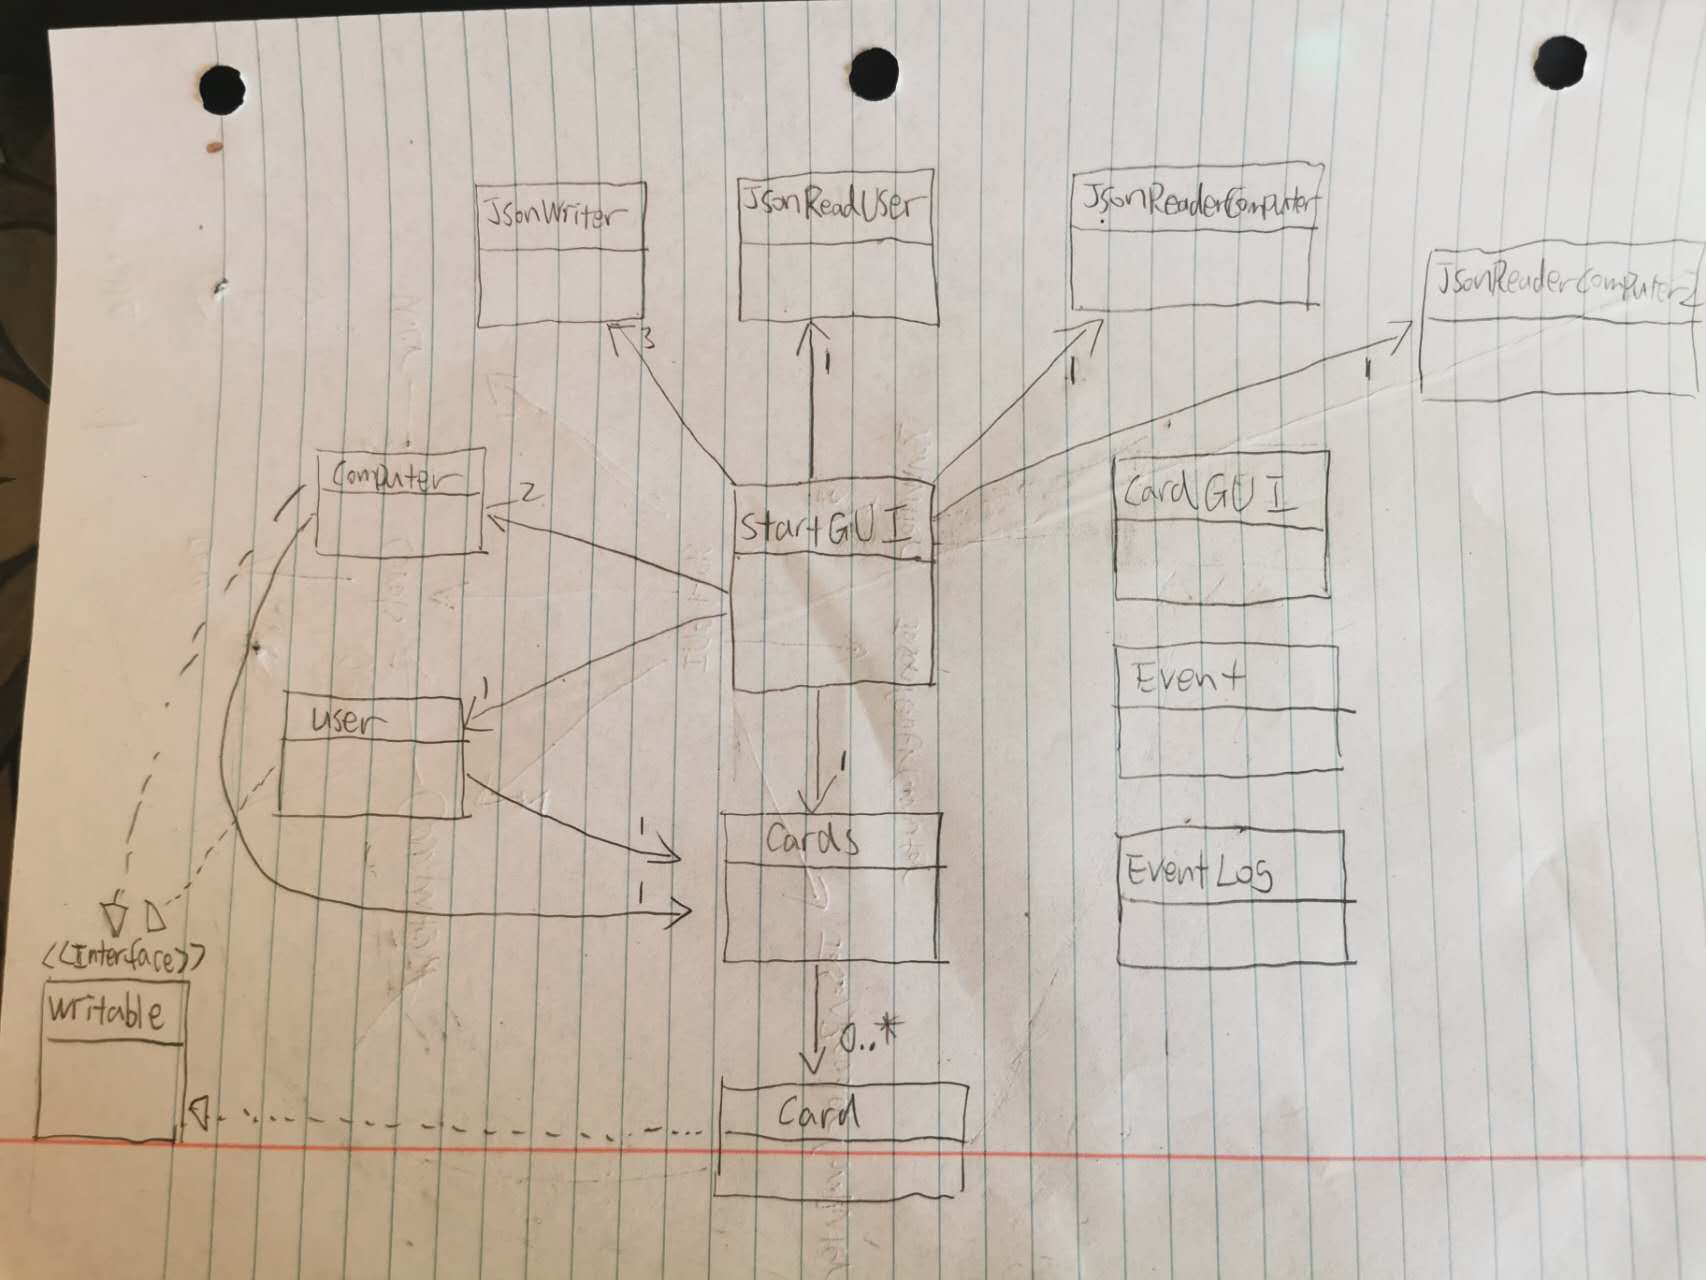 JsonWriter
JsonReadUser
JsonReaderComputer1
JsonReaderComputer2
3
1
1
1
Computer
2
startGUI
CardGUI
Event
user
1
1
Cards
1
1
EventLog
<<Interface>>
writable
0..*
Card